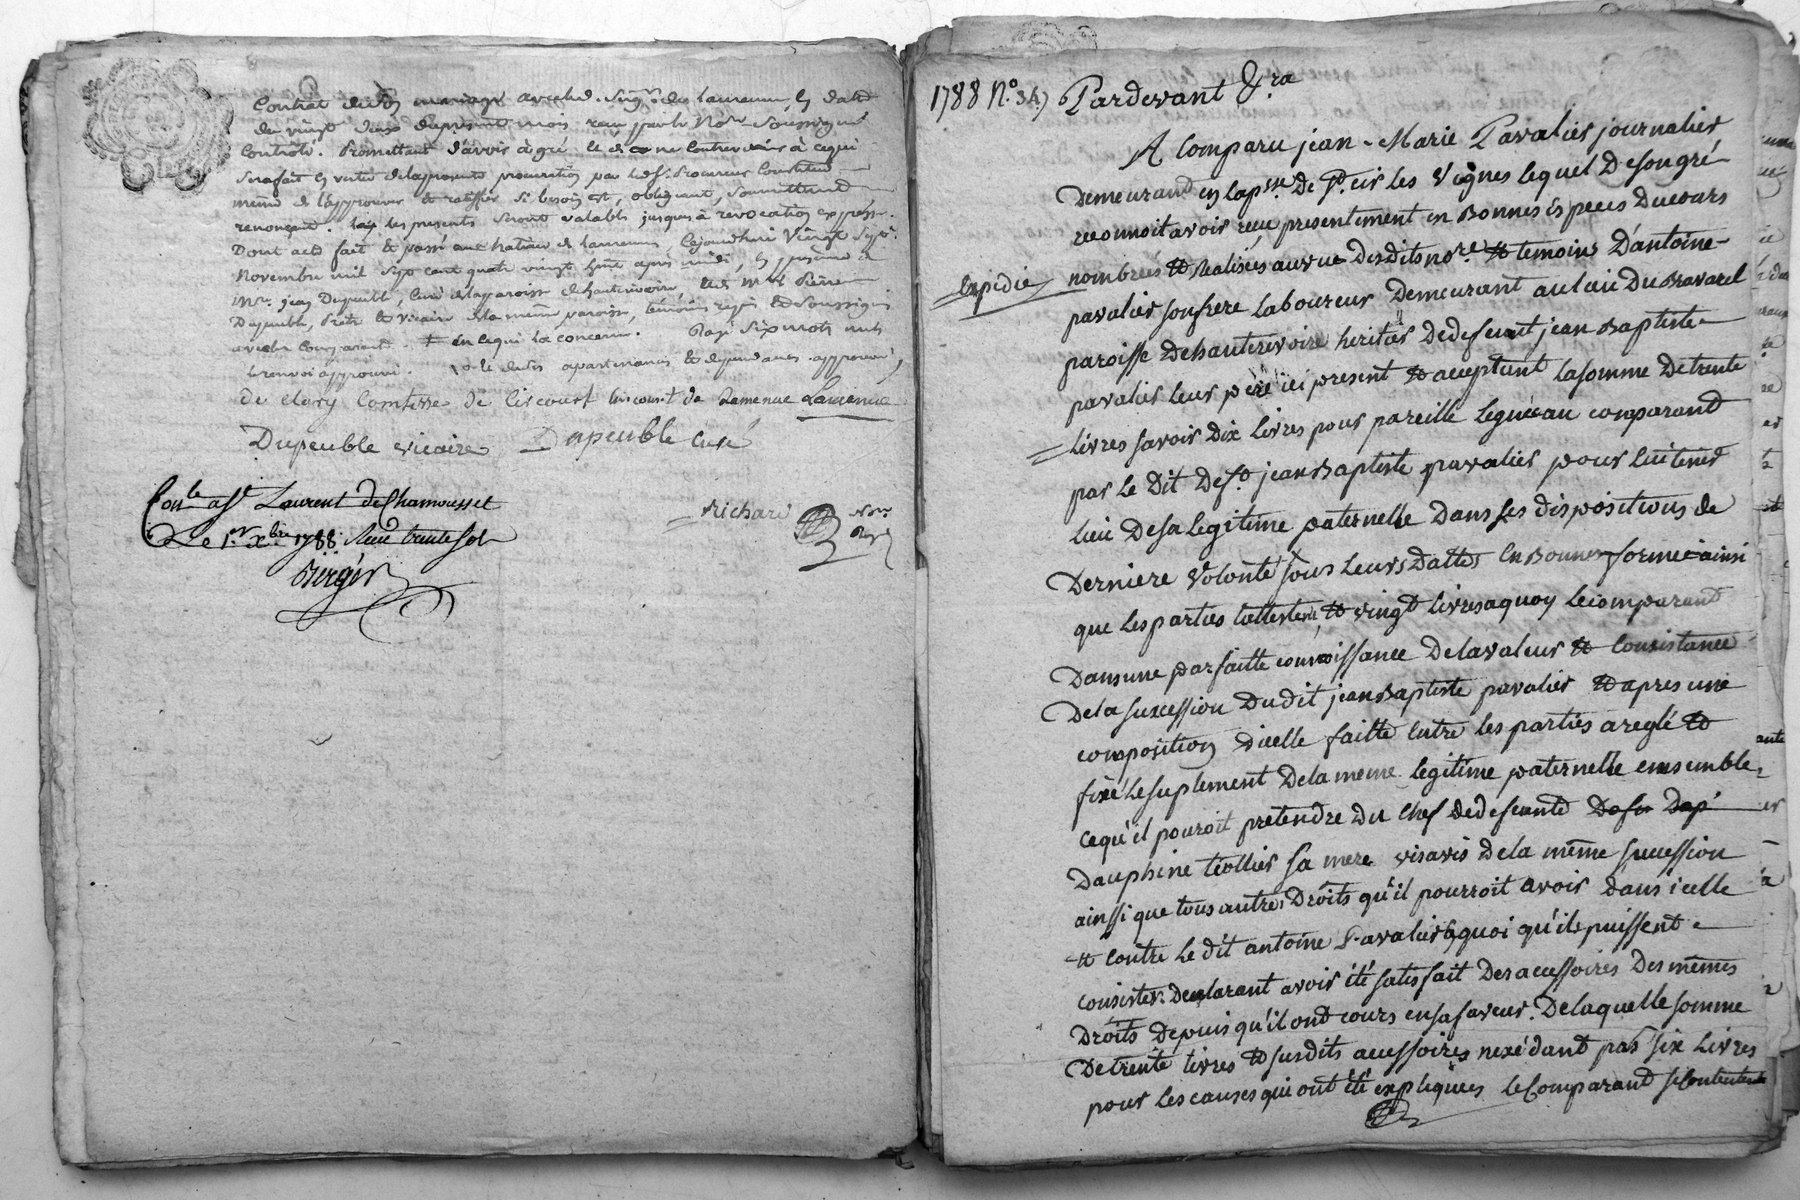 Contrat dudit mariage avec led. Seigr. de Lamenue, en datte
du vingt deux du present mois reçu par le Nore. Soussigné
Controlé. Promettant d'avoir à gré le et ne contrevenir à ce qui
Sera fait en vertu de la presente procuration par led. Sr. Procureur Constitué
meme de l'approuver et ratiffier si besoin est, obligeant, soumettant
renonçant. les presentes seront valables jusques à revocation expresse.
Dont acte fait et passé au chateau de Lamenue, Cejourdhui Vingt Sept
Novembre mil Sept cent quatre vingt huit après midi, En presence de
mre. jean Dupeuble, Curé de la paroisse de hauterivoire et de mre. Pierre
Dupeuble, Prêtre et vicaire de la même paroisse, témoins requis et Soussignés
avec la Comparante. en ce qui la concerne. Rayé Six mots nuls
le renvoi approuvé. et de ses apartenances et dependances approuvé
de Clary Comtesse de Circourt Circourt de Lamenue Lamenue
Dupeuble vicaire Dupeuble Curé
Conle. à St Laurent de Chamousset
Le 1er. Xbre 1788. Reçu trente sols
Berger
richard Nore
Roy
1788 N.o 347 Pardevant &ra
A Comparu jean-Marie Pavalier journalier
Demeurand en la psse de St. Cir les Vignes lequel De son gré
reconnoit avoir reçu presentement en Bonnes Especes Du cours
nombrées et Realisées au vue Desdits nore et temoins D'antoine
Expidié
pavalier son frere Laboureur Demeurant au lieu Du Bravarel
paroisse De hauterivoire heritier De defeunt jean Baptiste
pavalier leur pere ici present et acceptant La somme De trente
Livres savoir Dix Livres pour pareille Leguée au comparand
par Le Dit Deft. jean Baptiste pavalier pour lui tenir
Lieu De sa Legitime paternelle Dans ses dispositions de
Derniere Volonté sous Leurs Dattes En Bonnes forme ainsi
que Les parties l'attestent, et vingt Livres a quoy Le comparant
Dans une parfaitte connoissance De la valeur et Consistance
De la succession Dudit jean Baptiste pavalier et apres une
composition d'icelle faitte Entre les parties a reglé et
fixé Le suplement De la meme legitime paternelle ensemble
ce qu'il pouroit pretendre Du Chef De defeunte De fu Dap
Dauphine teollier Sa mere visavis De la même succession
ainssi que tous autres Droits qu'il pourroit avoir dans icelle
et contre Le dit antoine Pavalier & quoi qu'ils puissent
consister: Declarant avoir été satisfait Des accessoires Des mêmes
Droits Depuis qu'il ont cours en sa faveur. De laquelle somme
De trente livres et susdits accessoires nexédant pas six Livres
pour les causes qui ont été expliquées le Comparand se Contentent